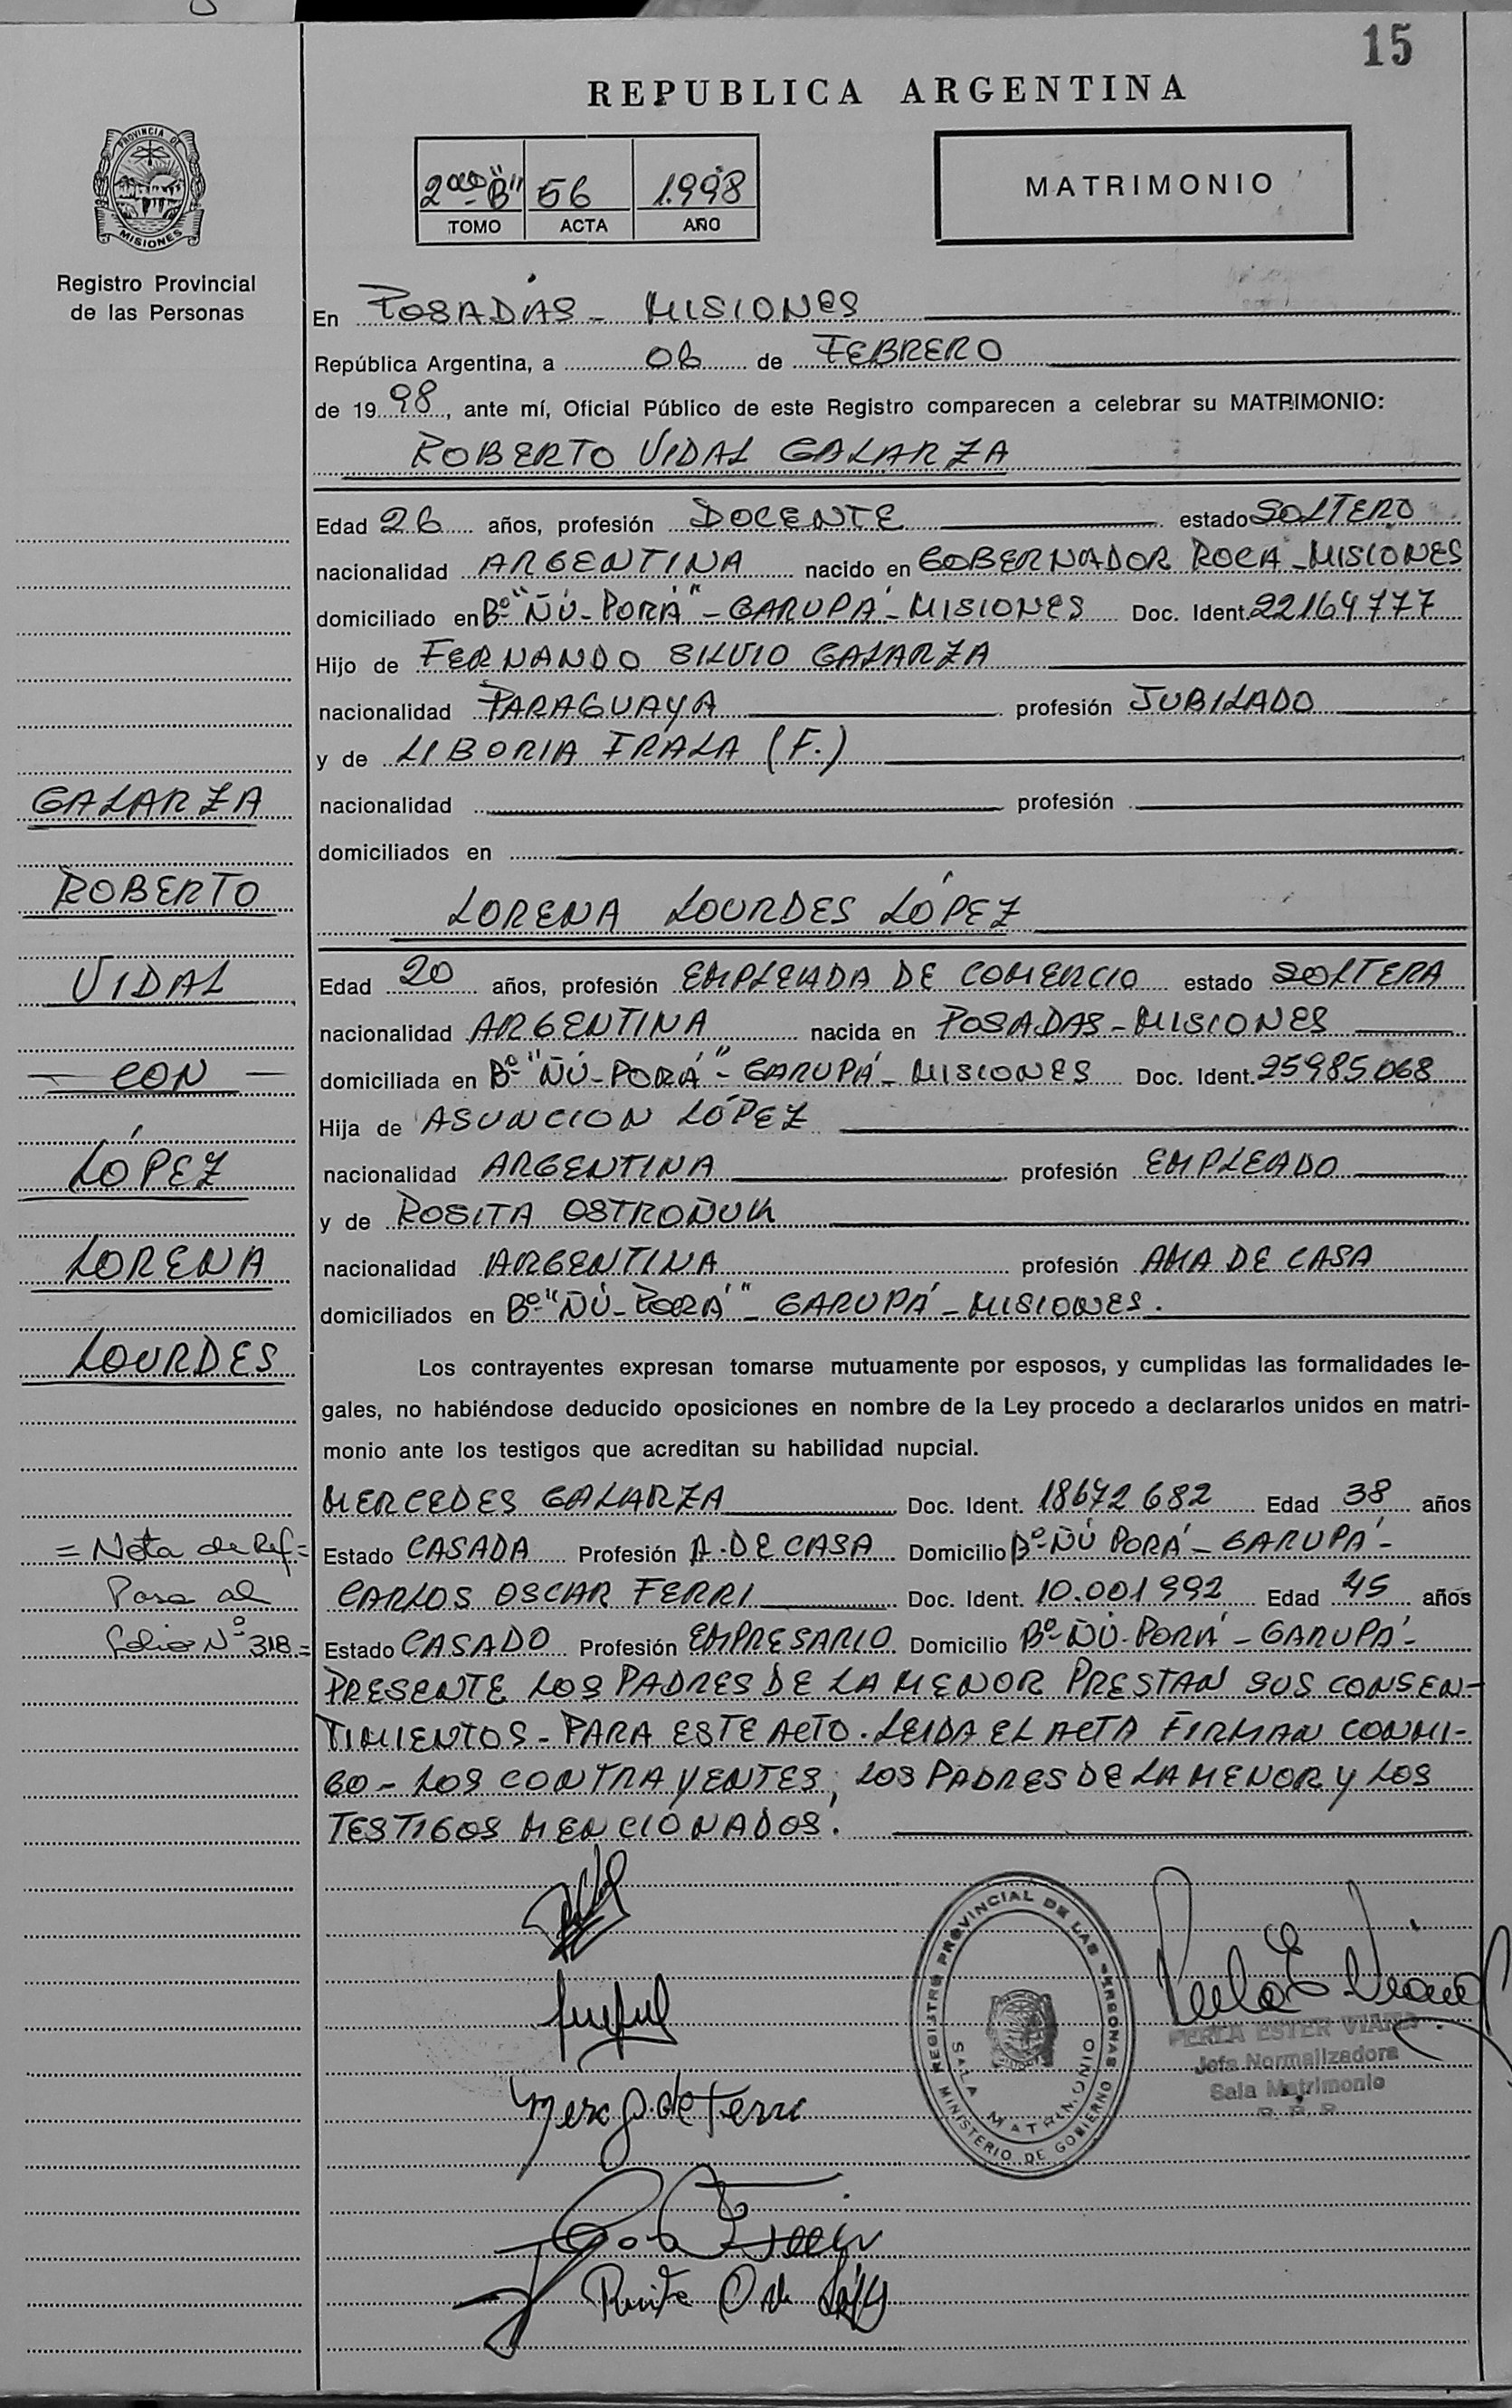 15
REPUBLICA ARGENTINA
PROVINCIA DE
MISIONES
Registro Provincial
de las Personas
2do "B" 56 1.998
TOMO ACTA AÑO
MATRIMONIO
En POSADAS - MISIONES
República Argentina, a 06 de FEBRERO
de 1998, ante mí, Oficial Público de este Registro comparecen a celebrar su MATRIMONIO:
ROBERTO VIDAL GALARZA
Edad 26 años, profesión DOCENTE estado SOLTERO
nacionalidad ARGENTINA nacido en GOBERNADOR ROCA - MISIONES
domiciliado en Bº "ÑÚ-PORÁ" - GARUPÁ - MISIONES Doc. Ident. 22164777
Hijo de FERNANDO SILVIO GALARZA
nacionalidad PARAGUAYA profesión JUBILADO
y de LIBORIA IRALA (F.)
nacionalidad profesión
domiciliados en
LORENA LOURDES LÓPEZ
Edad 20 años, profesión EMPLEADA DE COMERCIO estado SOLTERA
nacionalidad ARGENTINA nacida en POSADAS - MISIONES
domiciliada en Bº "ÑÚ-PORÁ" - GARUPÁ - MISIONES Doc. Ident. 25985068
Hija de ASUNCION LÓPEZ
nacionalidad ARGENTINA profesión EMPLEADO
y de ROSITA OSTROÑUK
nacionalidad ARGENTINA profesión AMA DE CASA
domiciliados en Bº "ÑÚ-PORÁ" - GARUPÁ - MISIONES.
Los contrayentes expresan tomarse mutuamente por esposos, y cumplidas las formalidades le-
gales, no habiéndose deducido oposiciones en nombre de la Ley procedo a declararlos unidos en matri-
monio ante los testigos que acreditan su habilidad nupcial.
MERCEDES GALARZA Doc. Ident. 18672682 Edad 38 años
Estado CASADA Profesión A. DE CASA Domicilio Bº ÑÚ PORÁ - GARUPÁ -
CARLOS OSCAR FERRI Doc. Ident. 10.001992 Edad 45 años
Estado CASADO Profesión EMPRESARIO Domicilio Bº ÑÚ-PORÁ - GARUPÁ -
PRESENTE LOS PADRES DE LA MENOR PRESTAN SUS CONSEN-
TIMIENTOS - PARA ESTE ACTO. LEIDA EL ACTA FIRMAN CONMI-
GO - LOS CONTRAYENTES, LOS PADRES DE LA MENOR Y LOS
TESTIGOS MENCIONADOS.
GALARZA
ROBERTO
VIDAL
- CON -
LÓPEZ
LORENA
LOURDES
= Nota de Ref. =
Pasa al
folio Nº 318 =
REGISTRO PROVINCIAL DE LAS PERSONAS
MINISTERIO DE GOBIERNO
SALA MATRIMONIO
PERLA ESTER VIANA
Jefa Normalizadora
Sala Matrimonio